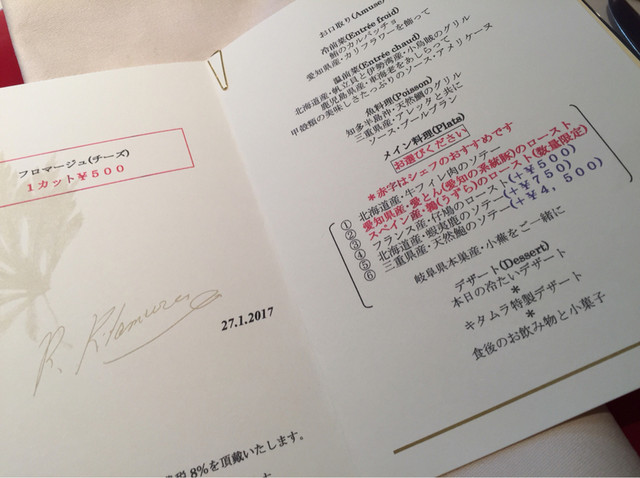 フロマージュ(チーズ)
1カット¥500
27.1.2017
8%を頂戴いたします。
お口取り(Amuse)
冷前菜(Entrée froid)
鮪のカルパッチョ
愛知県産・カリフラワーを飾って
温前菜(Entrée chaud)
北海道産・帆立貝と伊勢湾産・小烏賊のグリル
鹿児島県産・車海老をあしらって
甲殻類の美味しさたっぷりのソース・アメリケーヌ
魚料理(Poisson)
知多半島沖・天然鯛のグリル
三重県産・アレッタと共に
ソース・ブールブラン
メイン料理(Plats)
お選びください
*赤字はシェフのおすすめです
① 北海道産・牛フィレ肉のソテー
② 愛知県産・愛とん(愛知の系統豚)のロースト
③ スペイン産・鶉(うずら)のロースト(数量限定)
④ フランス産・仔鳩のロースト(+¥500)
⑤ 北海道産・蝦夷鹿のソテー(+¥750)
⑥ 三重県産・天然鮑のソテー(+¥4,500)
岐阜県本巣産・小蕪をご一緒に
デザート(Dessert)
本日の冷たいデザート
*
キタムラ特製デザート
*
食後のお飲み物と小菓子